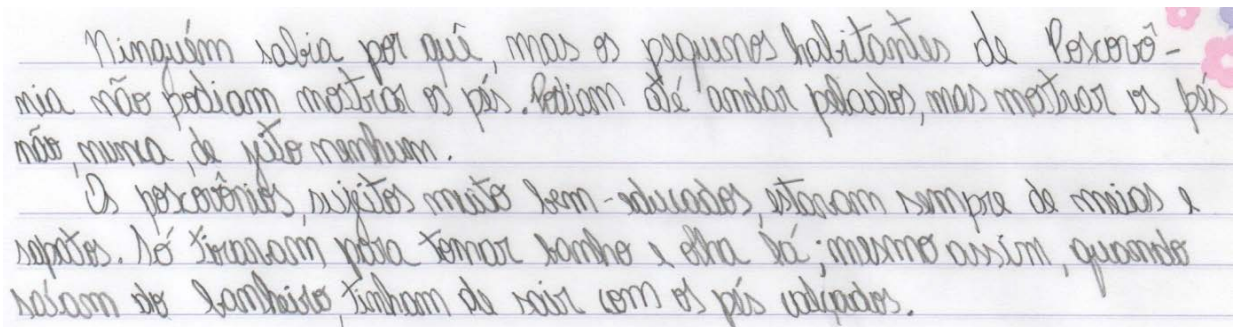 Ninguém sabia por quê, mas os pequenos habitantes de Poscovô-
nia não podiam mostrar os pés. Podiam até andar pelados, mas mostrar os pés
não, nunca, de jeito nenhum.
Os poscovônios, sujeitos muito bem-educados, estavam sempre de meias e
sapatos. Só tiravam para tomar banho e olha lá; mesmo assim, quando
saíam do banheiro, tinham de sair com os pés calçados.